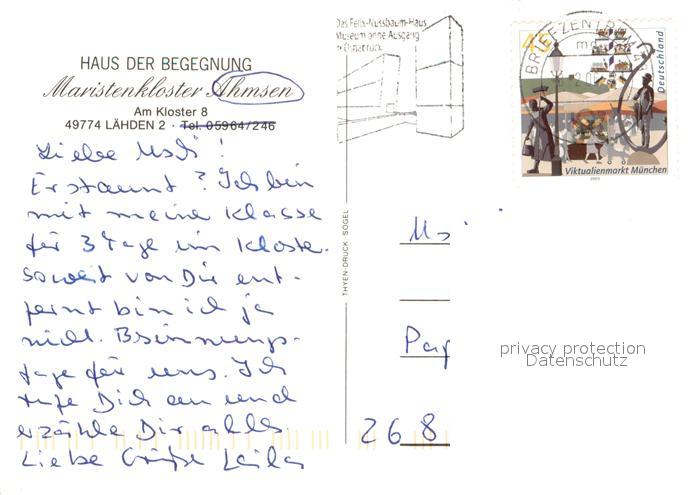 HAUS DER BEGEGNUNG
Maristenkloster Ahmsen
Am Kloster 8
49774 LÄHDEN 2 · Tel. 05964/246
Liebe Usi!
Erstaunt? Ich bin
mit meine Klasse
für 3 Tage im Kloster.
soweit von Dir ent-
fernt bin ich ja
nicht. Besinnungs-
tage für uns. Ich
rufe Dich an und
erzähle Dir alles.
Liebe Grüße
THYEN-DRUCK SÖGEL
Das Felix-Nussbaum-Haus
Museum ohne Ausgang
Osnabrück
BRIEFZENTRUM
45
Deutschland
Viktualienmarkt München
2003
Usi
Pap
268
privacy protection
Datenschutz